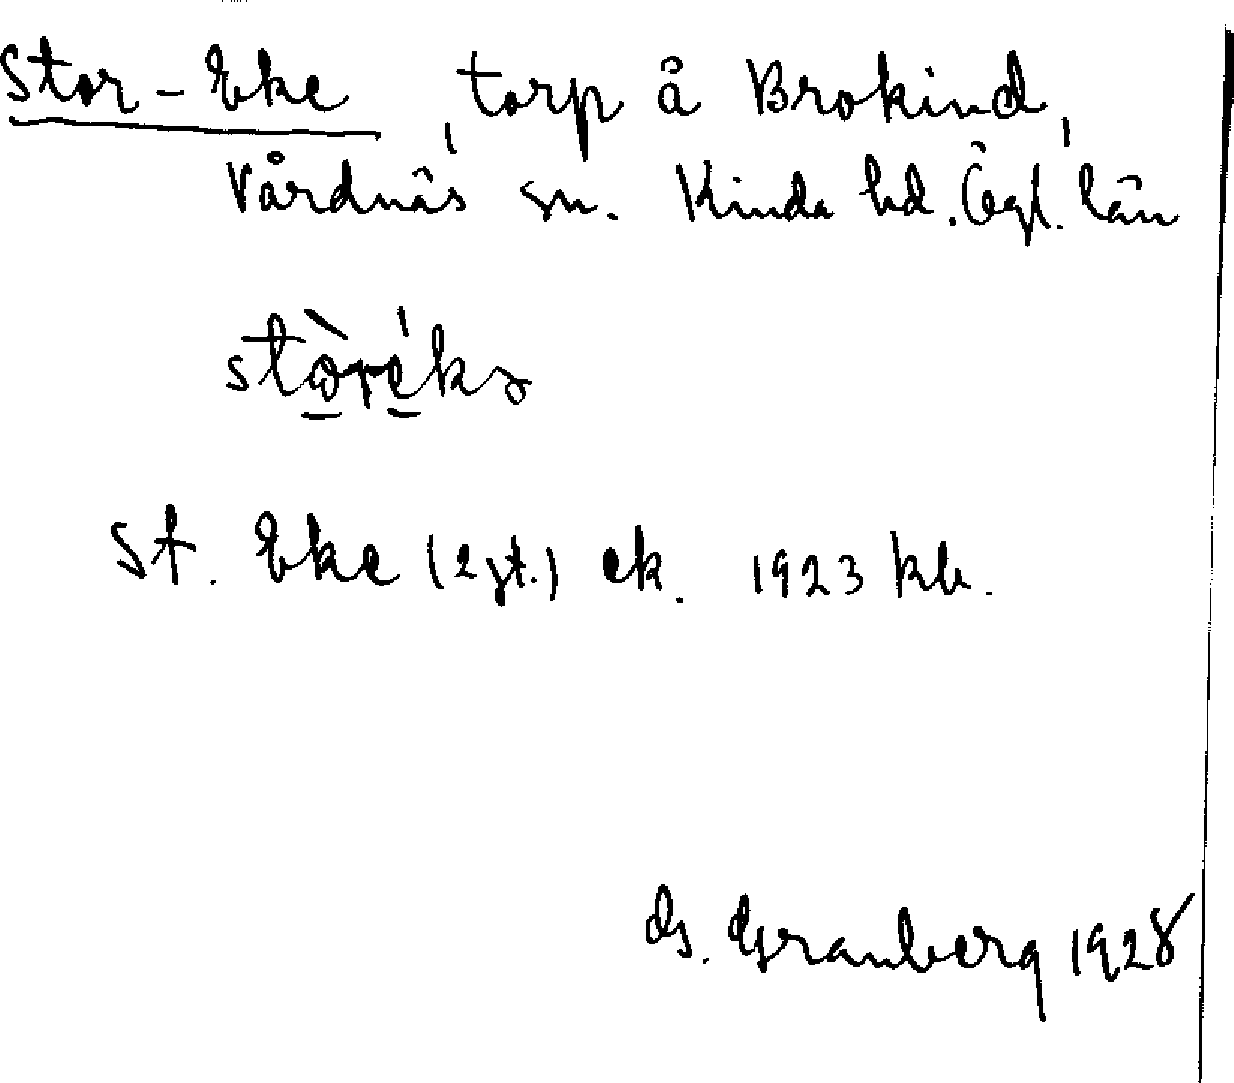 Stor-Eke, torp å Brokind,
Vårdnäs sn. Kinda hd. Ögl. län
stòrékə
St. Eke (2 st.) ek. 1923 kb.
G. Granberg 1928